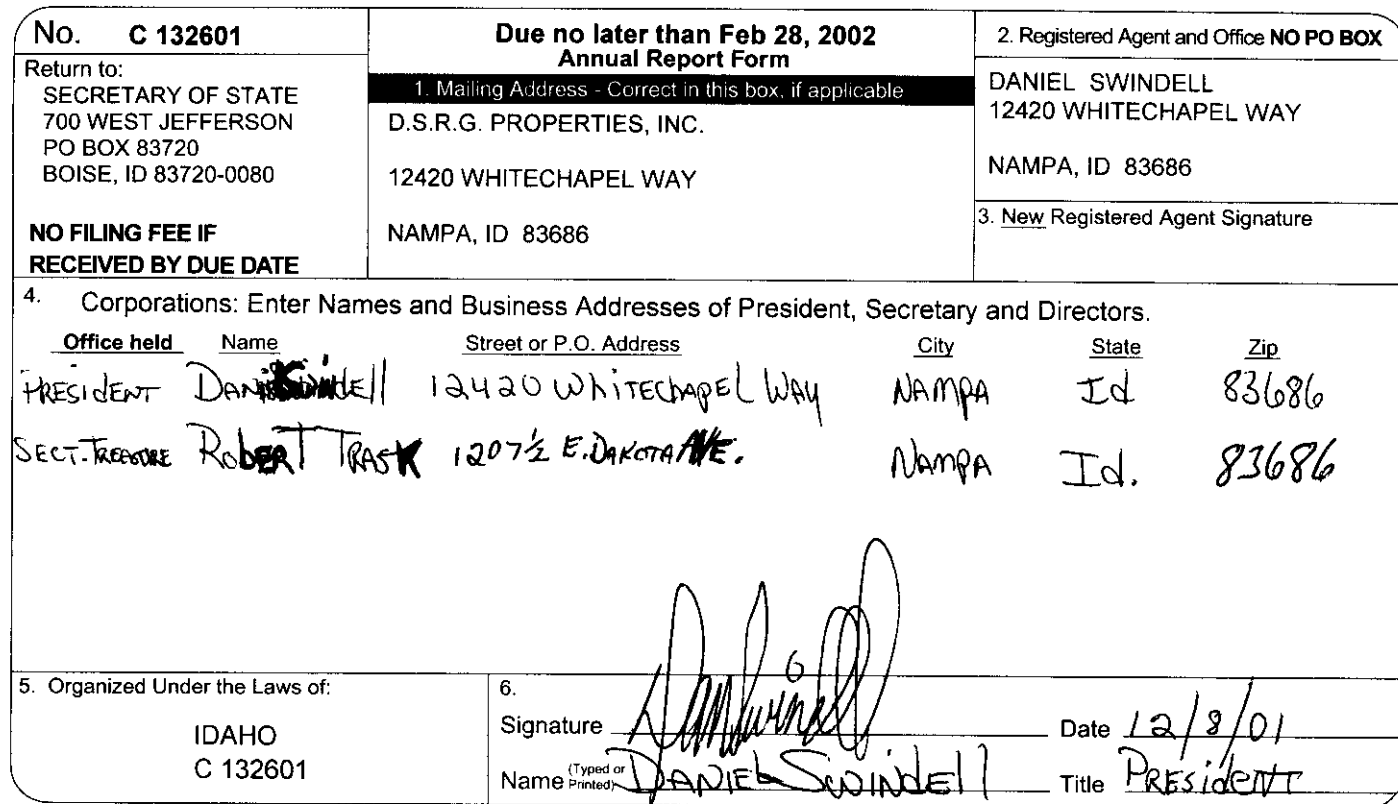 No. C 132601
Return to:
SECRETARY OF STATE
700 WEST JEFFERSON
PO BOX 83720
BOISE, ID 83720-0080
NO FILING FEE IF
RECEIVED BY DUE DATE
Due no later than Feb 28, 2002
Annual Report Form
1. Mailing Address - Correct in this box, if applicable
D.S.R.G. PROPERTIES, INC.
12420 WHITECHAPEL WAY
NAMPA, ID 83686
2. Registered Agent and Office NO PO BOX
DANIEL SWINDELL
12420 WHITECHAPEL WAY
NAMPA, ID 83686
3. New Registered Agent Signature
4. Corporations: Enter Names and Business Addresses of President, Secretary and Directors.
Office held Name Street or P.O. Address City State Zip
PRESIdENT DANiel SwindEll 12420 WhiTECHAPEL WAY NAMPA Id 83686
SECT-TREASURE RobERT TRASK 1207½ E. DAKOTA AVE. NAMPA Id. 83686
5. Organized Under the Laws of:
IDAHO
C 132601
6.
Signature Dan Swindell Date 12/8/01
Name (Typed or Printed) DANIEL SWINdEll Title PRESidENT